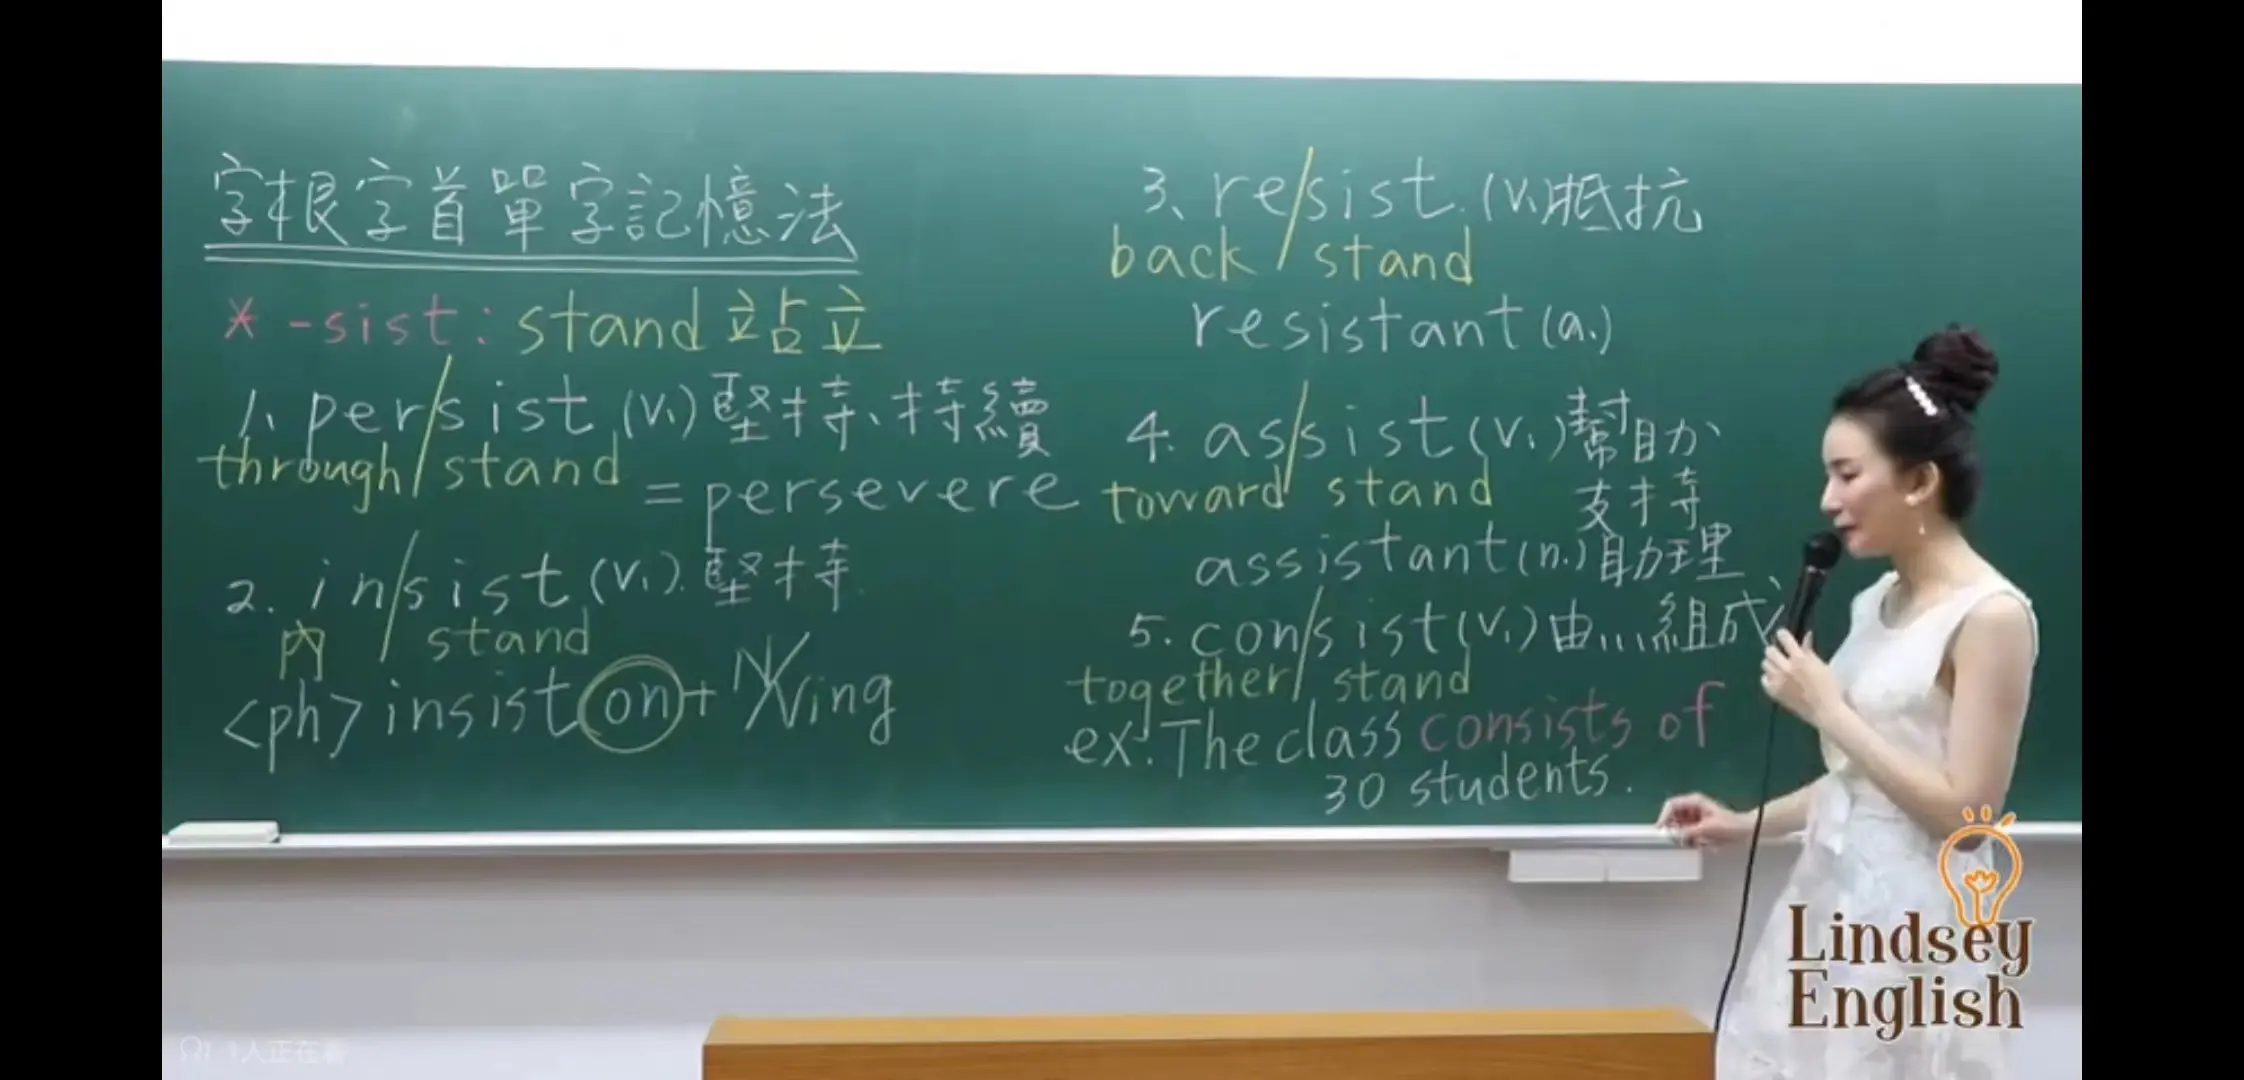 字根字首單字記憶法
* -sist: stand 站立
1. per/sist (v.) 堅持、持續
through/stand
= persevere
2. in/sist (v.) 堅持
內 / stand
<ph> insist on + N/Ving
3. re/sist (v.) 抵抗
back / stand
resistant (a.)
4. as/sist (v.) 幫助、
支持
toward / stand
assistant (n.) 助理
5. con/sist (v.) 由...組成、
together / stand
ex. The class consists of
30 students.
Lindsey
English
1人正在看